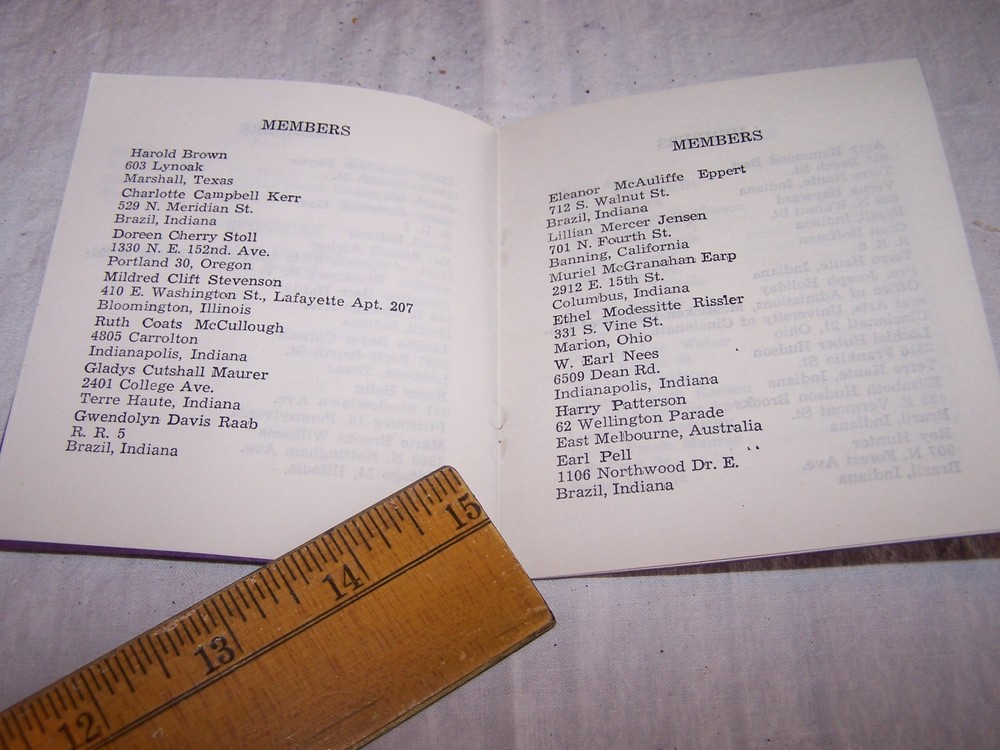 MEMBERS
Harold Brown
603 Lynoak
Marshall, Texas
Charlotte Campbell Kerr
529 N. Meridian St.
Brazil, Indiana
Doreen Cherry Stoll
1330 N. E. 152nd. Ave.
Portland 30, Oregon
Mildred Clift Stevenson
410 E. Washington St., Lafayette Apt. 207
Bloomington, Illinois
Ruth Coats McCullough
4805 Carrolton
Indianapolis, Indiana
Gladys Cutshall Maurer
2401 College Ave.
Terre Haute, Indiana
Gwendolyn Davis Raab
R. R. 5
Brazil, Indiana
MEMBERS
Eleanor McAuliffe Eppert
712 S. Walnut St.
Brazil, Indiana
Lillian Mercer Jensen
701 N. Fourth St.
Banning, California
Muriel McGranahan Earp
2912 E. 15th St.
Columbus, Indiana
Ethel Modessitte Rissler
331 S. Vine St.
Marion, Ohio
W. Earl Nees
6509 Dean Rd.
Indianapolis, Indiana
Harry Patterson
62 Wellington Parade
East Melbourne, Australia
Earl Pell
1106 Northwood Dr. E.
Brazil, Indiana
12 13 14 15